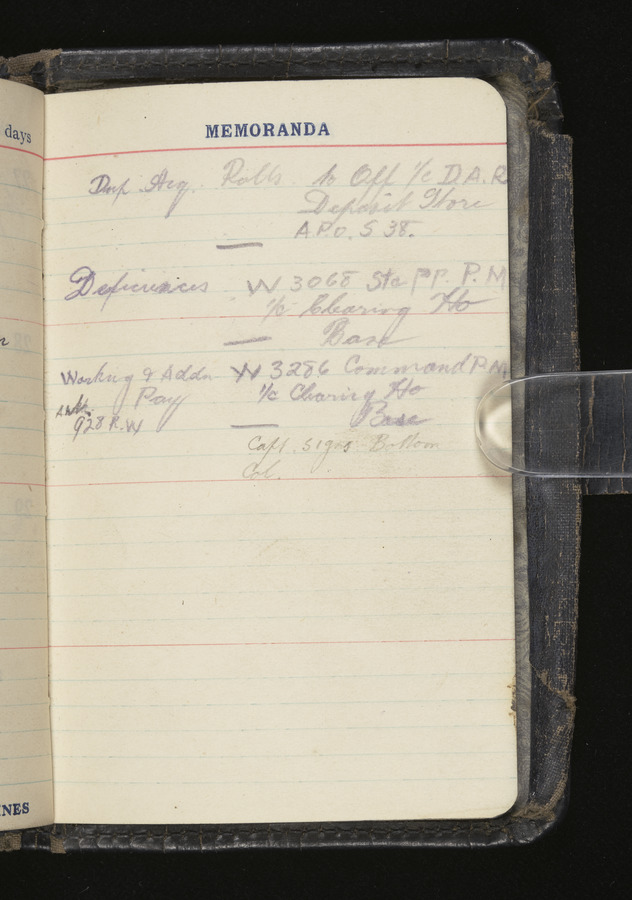 days
MEMORANDA
Dup. Acq. Rolls. to Off I/c D.A.R
Deposit Store
A.P.O. S 38.
Deficiencies W 3068 Sta PP. P.M
I/c Clearing Ho
Base
Working & Addn W 3286 Command P.M.
Pay I/c Clearing Ho
928 R.W Base
Capt. Signs Bottom
Col.
INES